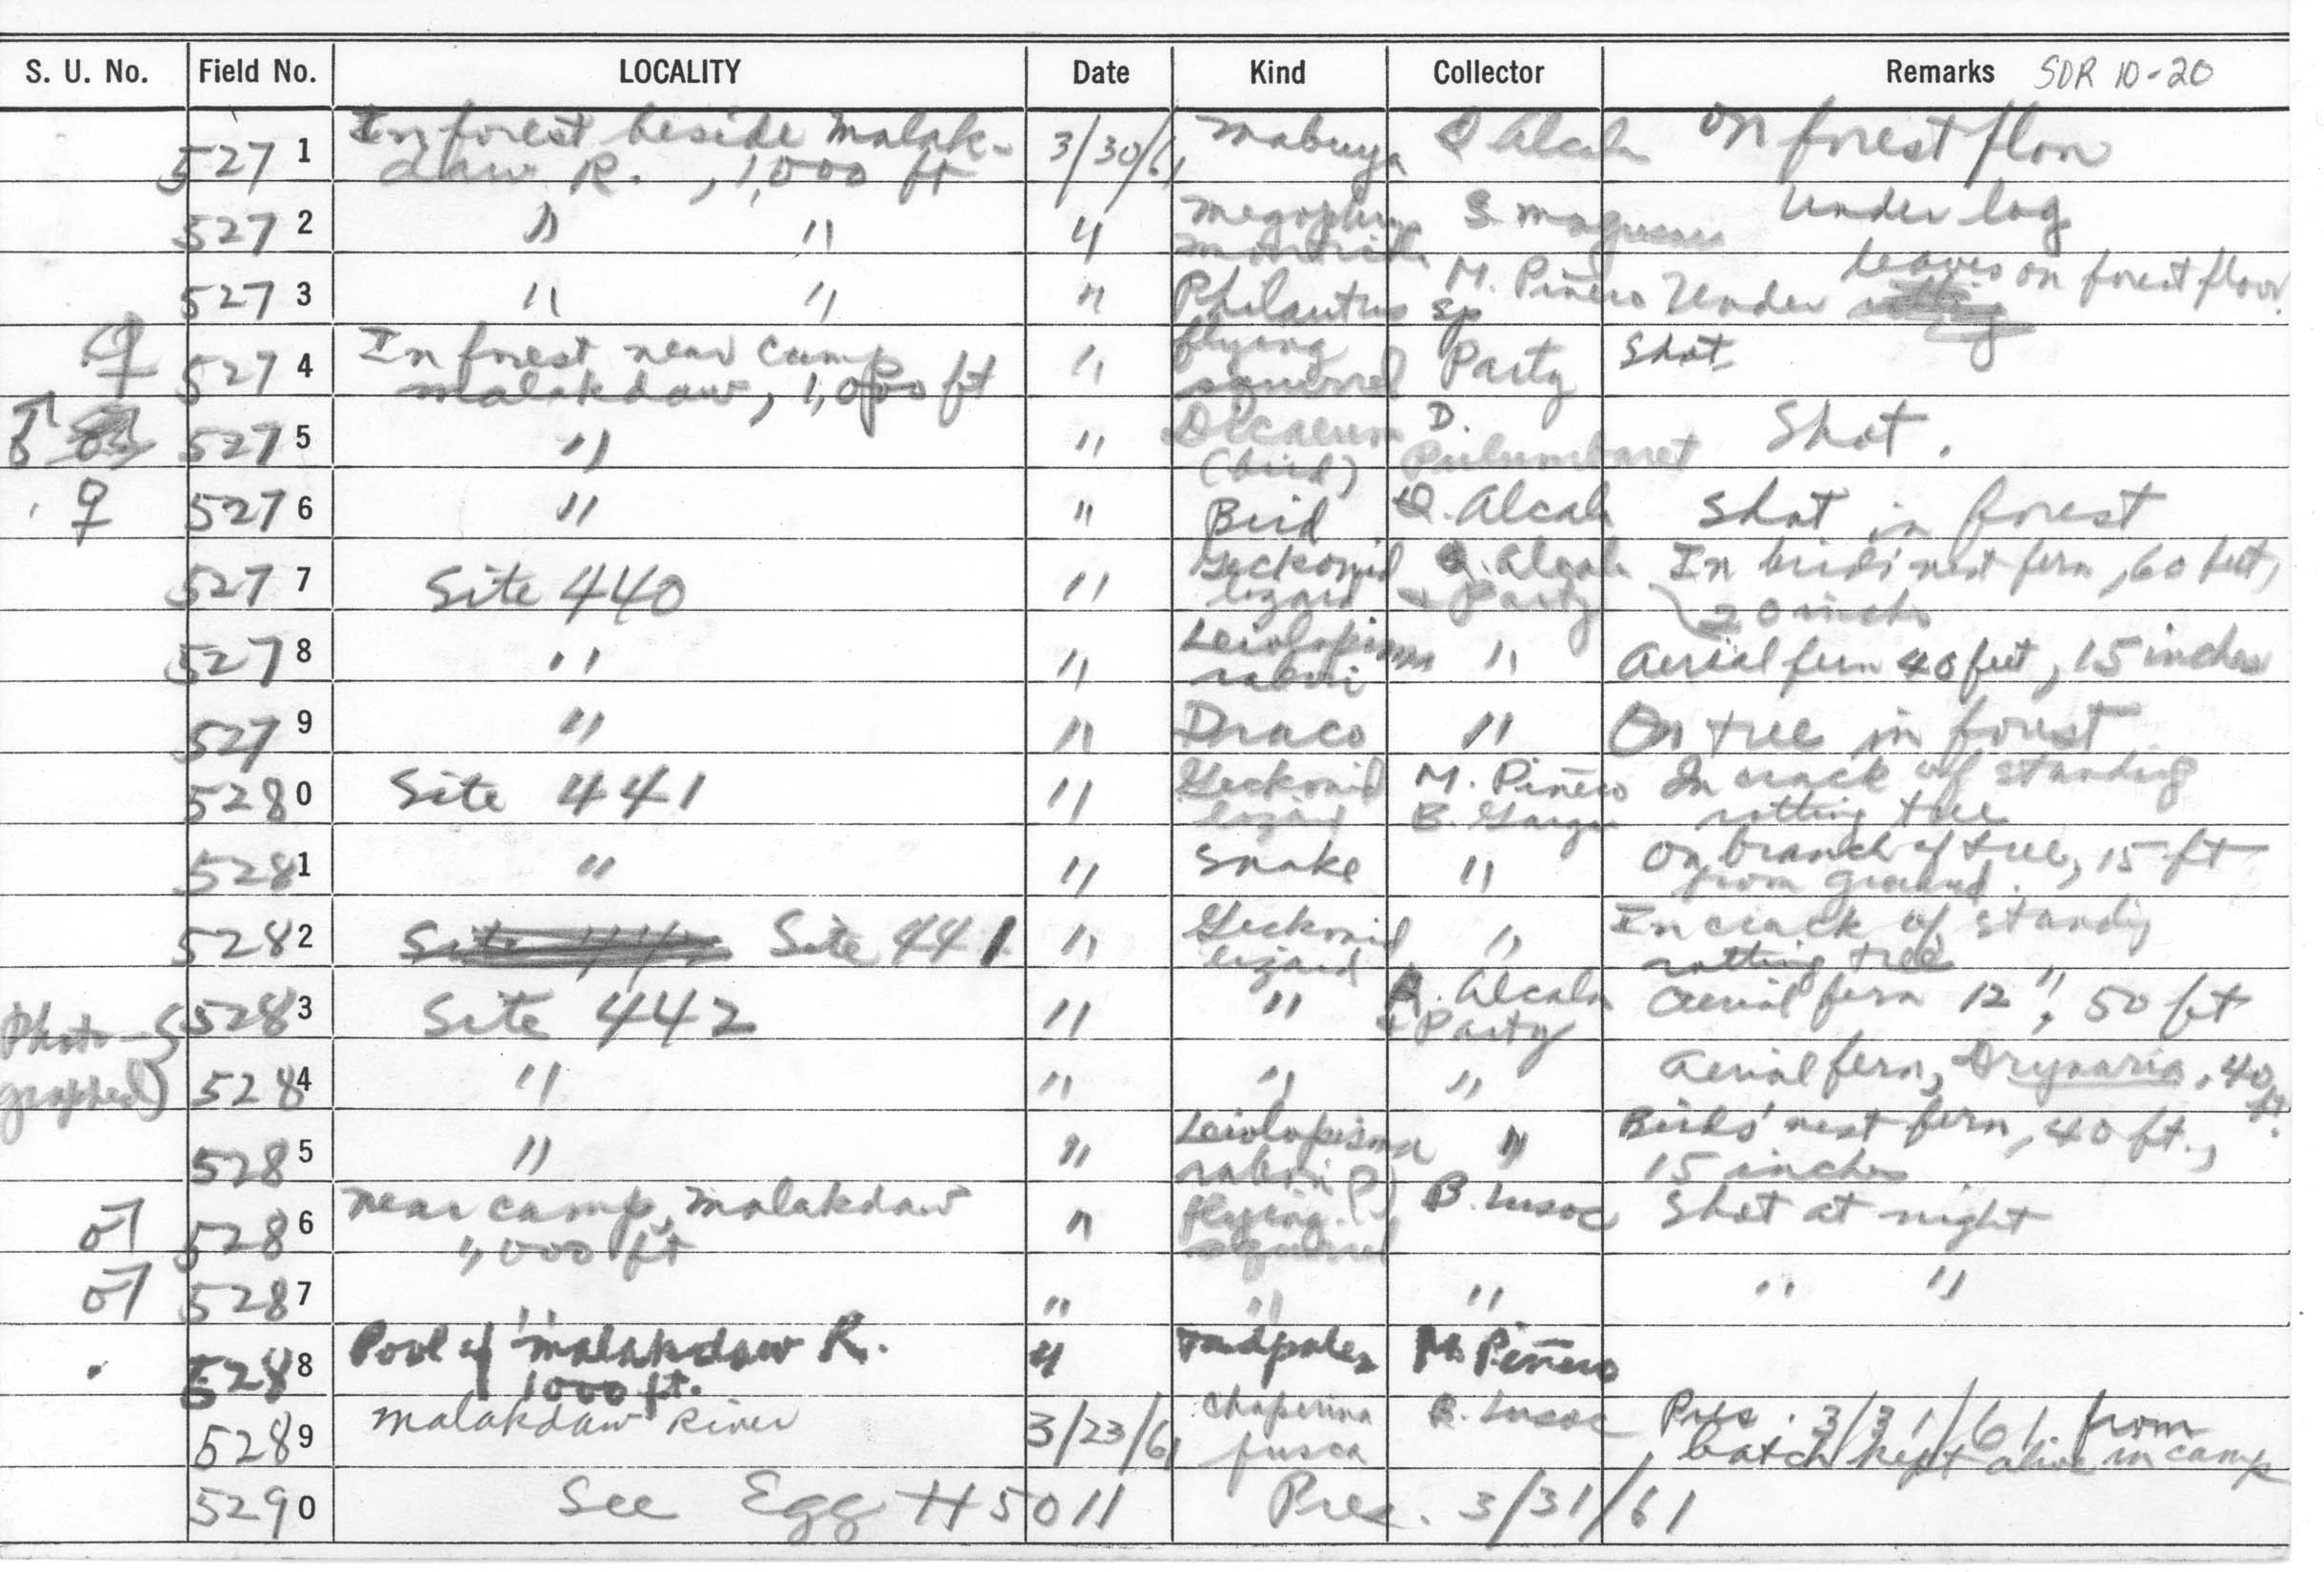 S. U. No. Field No. LOCALITY Date Kind Collector Remarks SDR 10-20
5271 In forest beside Malak- 3/30/61 Mabuya Q Alcala On forest floor
daw R., 1,000 ft
5272 " " " Megophrys S. Magusara Under log
monticola
5273 " " " Philautus sp M. Piñero Under leaves on forest floor.
♀ 5274 In forest near camp " flying Party Shot
Malakdaw, 1,000 ft squirrel
♂ 5275 " " Dicaeum D. Shot.
(bird) Pulumbaret
♀ 5276 " " Bird Q. Alcala Shot in forest
5277 Site 440 " Geckonid Q. Alcala In birds' nest fern, 60 feet,
lizard & Party 20 inches
5278 " " Leiolopisma " Aerial fern 40 feet, 15 inches
rabori
5279 " " Draco " On tree in forest
5280 Site 441 " Geckonid M. Piñero In crack of standing
lizard B. Gargar rotting tree
5281 " " Snake " On branch of tree, 15 ft
from ground.
5282 Site 441 " Geckonid " In crack of standing
lizard rotting tree
5283 Site 442 " " Q. Alcala Aerial fern 12", 50 ft
Photo- & Party
graphed 5284 " " " " Aerial fern, Drynaria, 40 ft.
5285 " " Leiolopisma " Birds' nest fern, 40 ft.,
rabori (?) 15 inches
♂ 5286 Near camp, Malakdaw " flying B. Lusoc Shot at night
1,000 ft squirrel
♂ 5287 " " " " " "
5288 Pool of Malakdaw R. " Tadpoles M. Piñero
1000 ft.
5289 Malakdaw River 3/23/61 Chaperina B. Lusoc Pres. 3/31/61 from
fusca batch kept alive in camp
5290 See Egg # 5011 Pres. 3/31/61